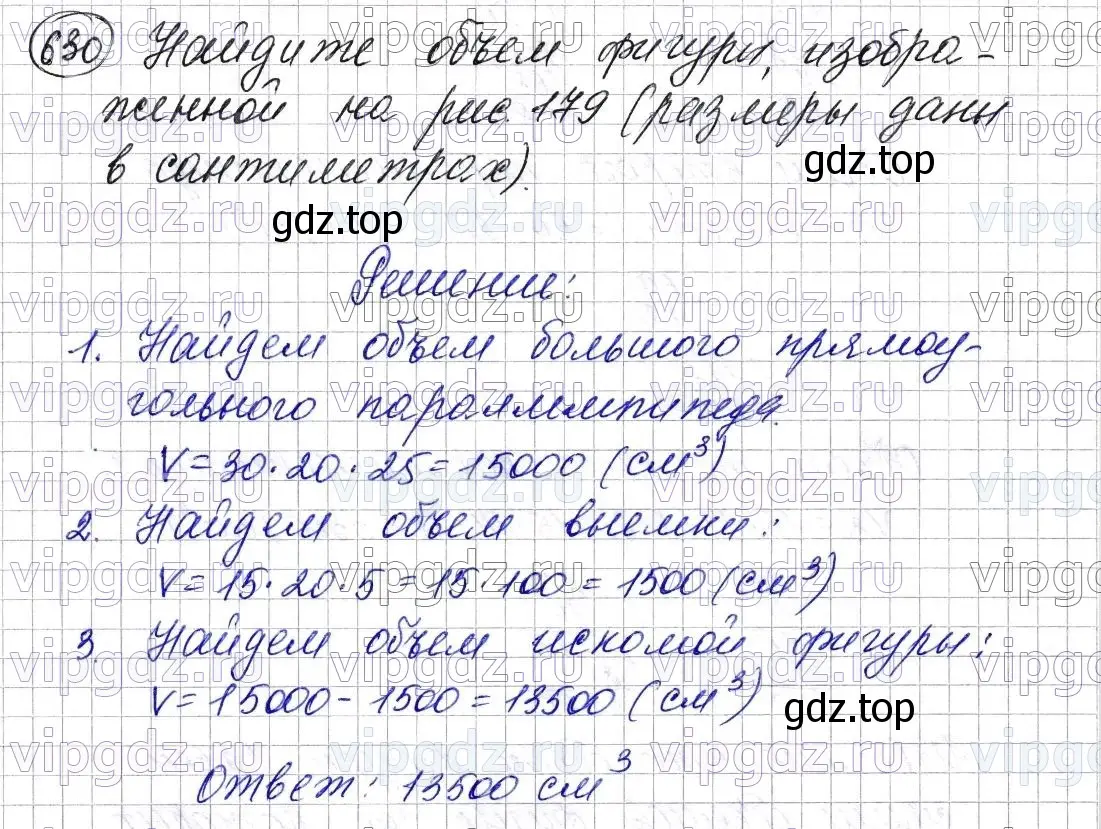 630 Найдите объем фигуры, изобра-
женной на рис. 179 (размеры даны
в сантиметрах).
gdz.top
gdz.top
Решение:
1. Найдем объем большого прямоу-
гольного параллелепипеда.
V = 30 · 20 · 25 = 15000 (см³)
2. Найдем объем выемки:
V = 15 · 20 · 5 = 15 · 100 = 1500 (см³)
3. Найдем объем искомой фигуры:
V = 15000 - 1500 = 13500 (см³)
gdz.top
Ответ: 13500 см³
vipgdz.ru